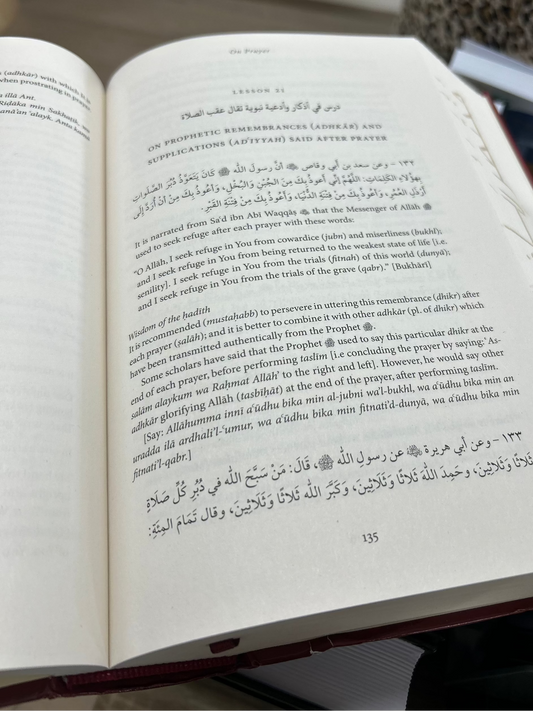 (adhkār) with which it is
when prostrating in prayer
illā Ant.
Riḍāka min Sakhaṭik, wa
anā'an 'alayk. Anta kamā
On Prayer
LESSON 21
درس في أذكار وأدعية نبوية تقال عقب الصلاة
ON PROPHETIC REMEMBRANCES (ADHKĀR) AND
SUPPLICATIONS (AD'IYYAH) SAID AFTER PRAYER
١٣٢ – وعن سعد بن أبي وقاص ﷺ أنّ رسول الله ﷺ كَانَ يَتَعَوَّذُ دُبُرَ الصَّلَواتِ
بِهؤُلَاءِ الكَلِمَاتِ: اللَّهُمَّ إنِّي أَعوذُ بِكَ مِنَ الجُبْنِ وَالبُخْلِ، وَأعُوذُ بِكَ مِنْ أنْ أُرَدَّ إِلَى
أَرْذَلِ العُمُرِ، وَأعُوذُ بِكَ مِنْ فِتْنَةِ الدُّنْيَا، وَأعُوذُ بِكَ مِنْ فِتْنَةِ القَبْرِ.
It is narrated from Sa'd ibn Abi Waqqāṣ that the Messenger of Allāh ﷺ
used to seek refuge after each prayer with these words:
"O Allāh, I seek refuge in You from cowardice (jubn) and miserliness (bukhl);
and I seek refuge in You from being returned to the weakest state of life [i.e.
senility]. I seek refuge in You from the trials (fitnah) of this world (dunyā);
and I seek refuge in You from the trials of the grave (qabr)." [Bukhārī]
Wisdom of the ḥadīth
It is recommended (mustaḥabb) to persevere in uttering this remembrance (dhikr) after
each prayer (ṣalāh); and it is better to combine it with other adhkār (pl. of dhikr) which
have been transmitted authentically from the Prophet ﷺ.
Some scholars have said that the Prophet ﷺ used to say this particular dhikr at the
end of each prayer, before performing taslīm [i.e concluding the prayer by saying:' As-
salām alaykum wa Raḥmat Allāh' to the right and left]. However, he would say other
adhkār glorifying Allāh (tasbīḥāt) at the end of the prayer, after performing taslīm.
[Say: Allāhumma inni a'ūdhu bika min al-jubni wa'l-bukhl, wa a'ūdhu bika min an
uradda ilā ardhali'l-'umur, wa a'ūdhu bika min fitnati'd-dunyā, wa a'ūdhu bika min
fitnati'l-qabr.]
١٣٣ – وعن أبي هريرة عن رسولِ الله ﷺ، قَالَ: مَنْ سَبَّحَ اللهَ في دُبُرِ كُلِّ صَلَاةٍ
ثَلاثًا وَثَلاثِينَ، وحَمِدَ اللهَ ثَلاثًا وَثَلَاثِينَ، وَكَبَّرَ الله ثَلاثًا وَثَلَاثِينَ، وقال تَمَامَ المِئَةِ:
135